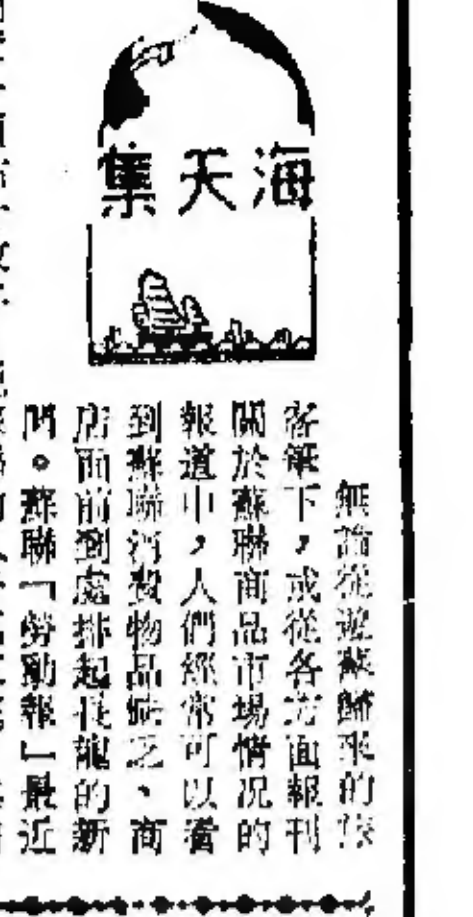 海天集
無論從遊蘇歸來的旅
客筆下，或從各方面報刊
關於蘇聯商品市場情况的
報道中，人們經常可以看
到蘇聯消費物品缺乏、商
店面前到處排起長龍的新
聞。蘇聯「勞動報」最近